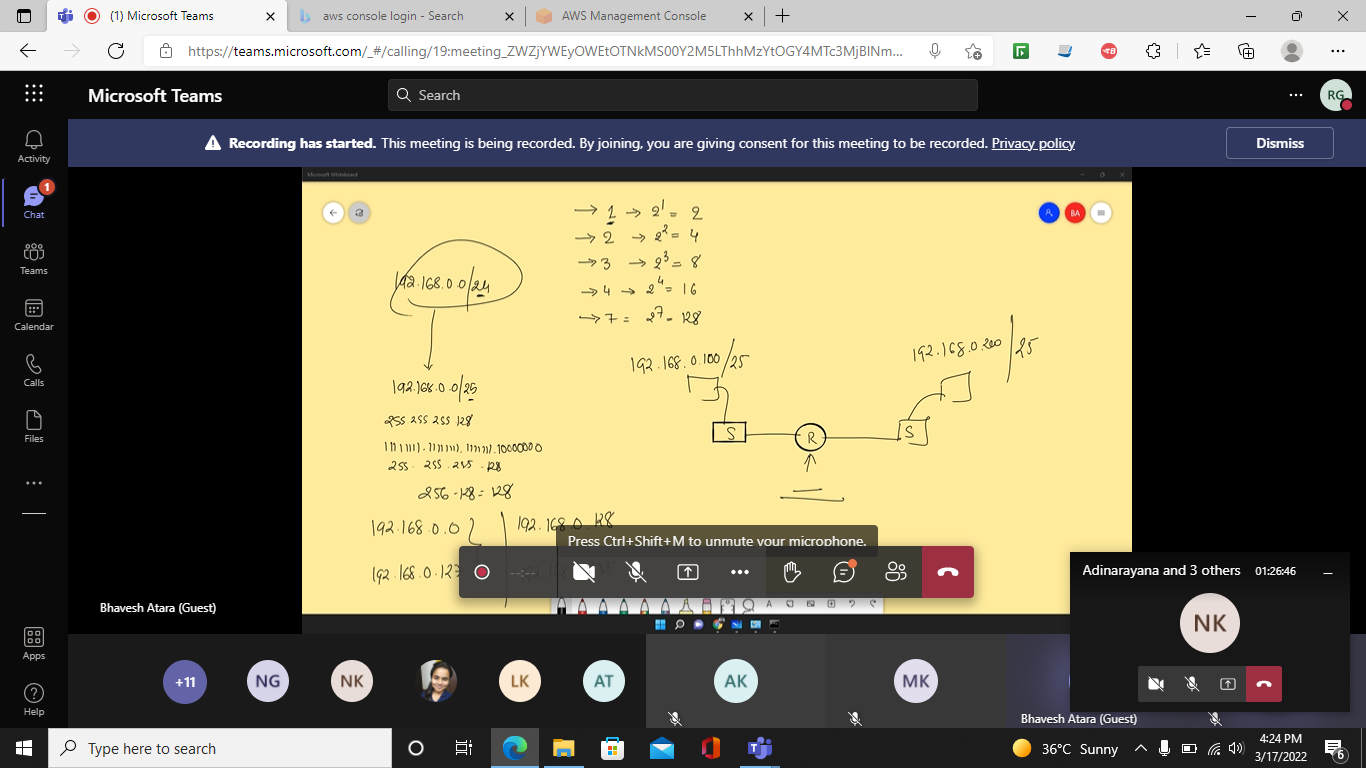 (1) Microsoft Teams
aws console login - Search
AWS Management Console
https://teams.microsoft.com/_#/calling/19:meeting_ZWZjYWEyOWEtOTNkMS00Y2M5LThhMzYtOGY4MTc3MjBlNm...
Microsoft Teams
Search
RG
Activity
Chat
1
Teams
Calendar
Calls
Files
Apps
Help
Recording has started. This meeting is being recorded. By joining, you are giving consent for this meeting to be recorded. Privacy policy
Dismiss
Microsoft Whiteboard
BA
→ 1 → 2^1 = 2
→ 2 → 2^2 = 4
→ 3 → 2^3 = 8
→ 4 → 2^4 = 16
→ 7 = 2^7 = 128
192.168.0.0/24
192.168.0.0/25
255 255 255 128
11111111.11111111.11111111.10000000
255. 255. 255. 128
256-128= 128
192.168.0.0
192.168.0.128
192.168.0.100/25
192.168.0.200/25
S
R
S
Press Ctrl+Shift+M to unmute your microphone.
Bhavesh Atara (Guest)
Adinarayana and 3 others
01:26:46
NK
+11
NG
NK
LK
AT
AK
MK
Bhavesh Atara (Guest)
Type here to search
36°C Sunny
4:24 PM
3/17/2022
6